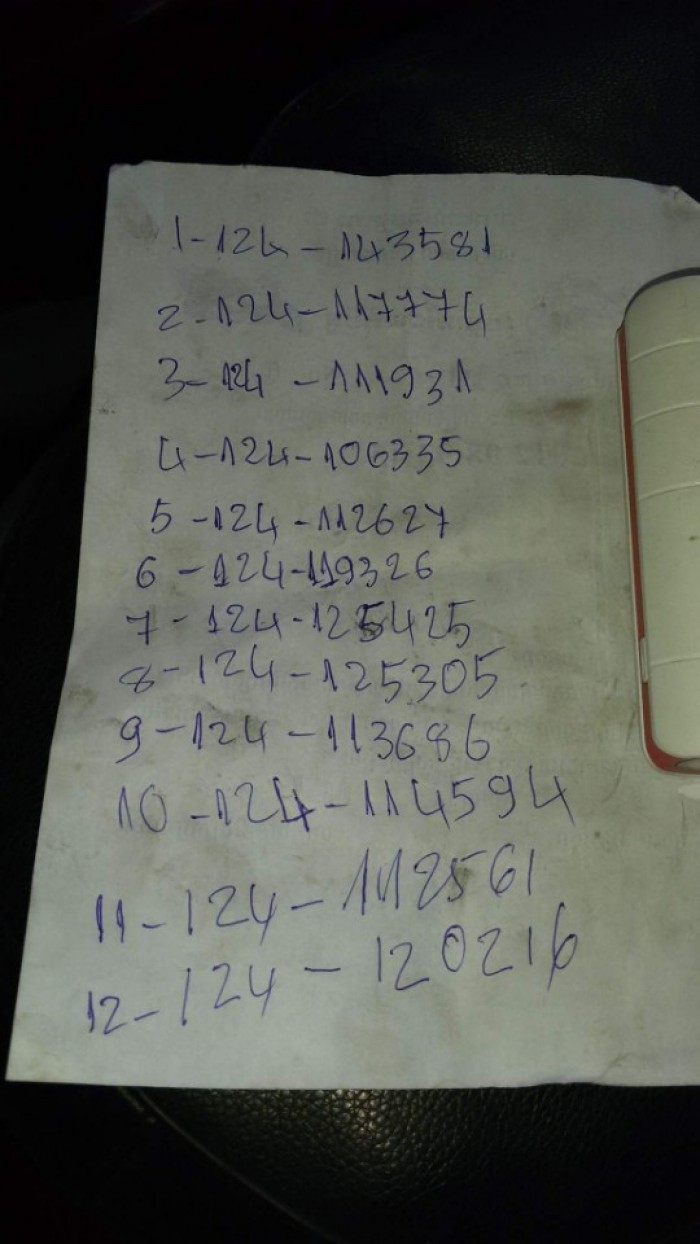 1-124-143581
2-124-117774
3-124-111931
4-124-106335
5-124-112627
6-124-119326
7-124-125425
8-124-125305
9-124-113686
10-124-114594
11-124-112561
12-124-120216